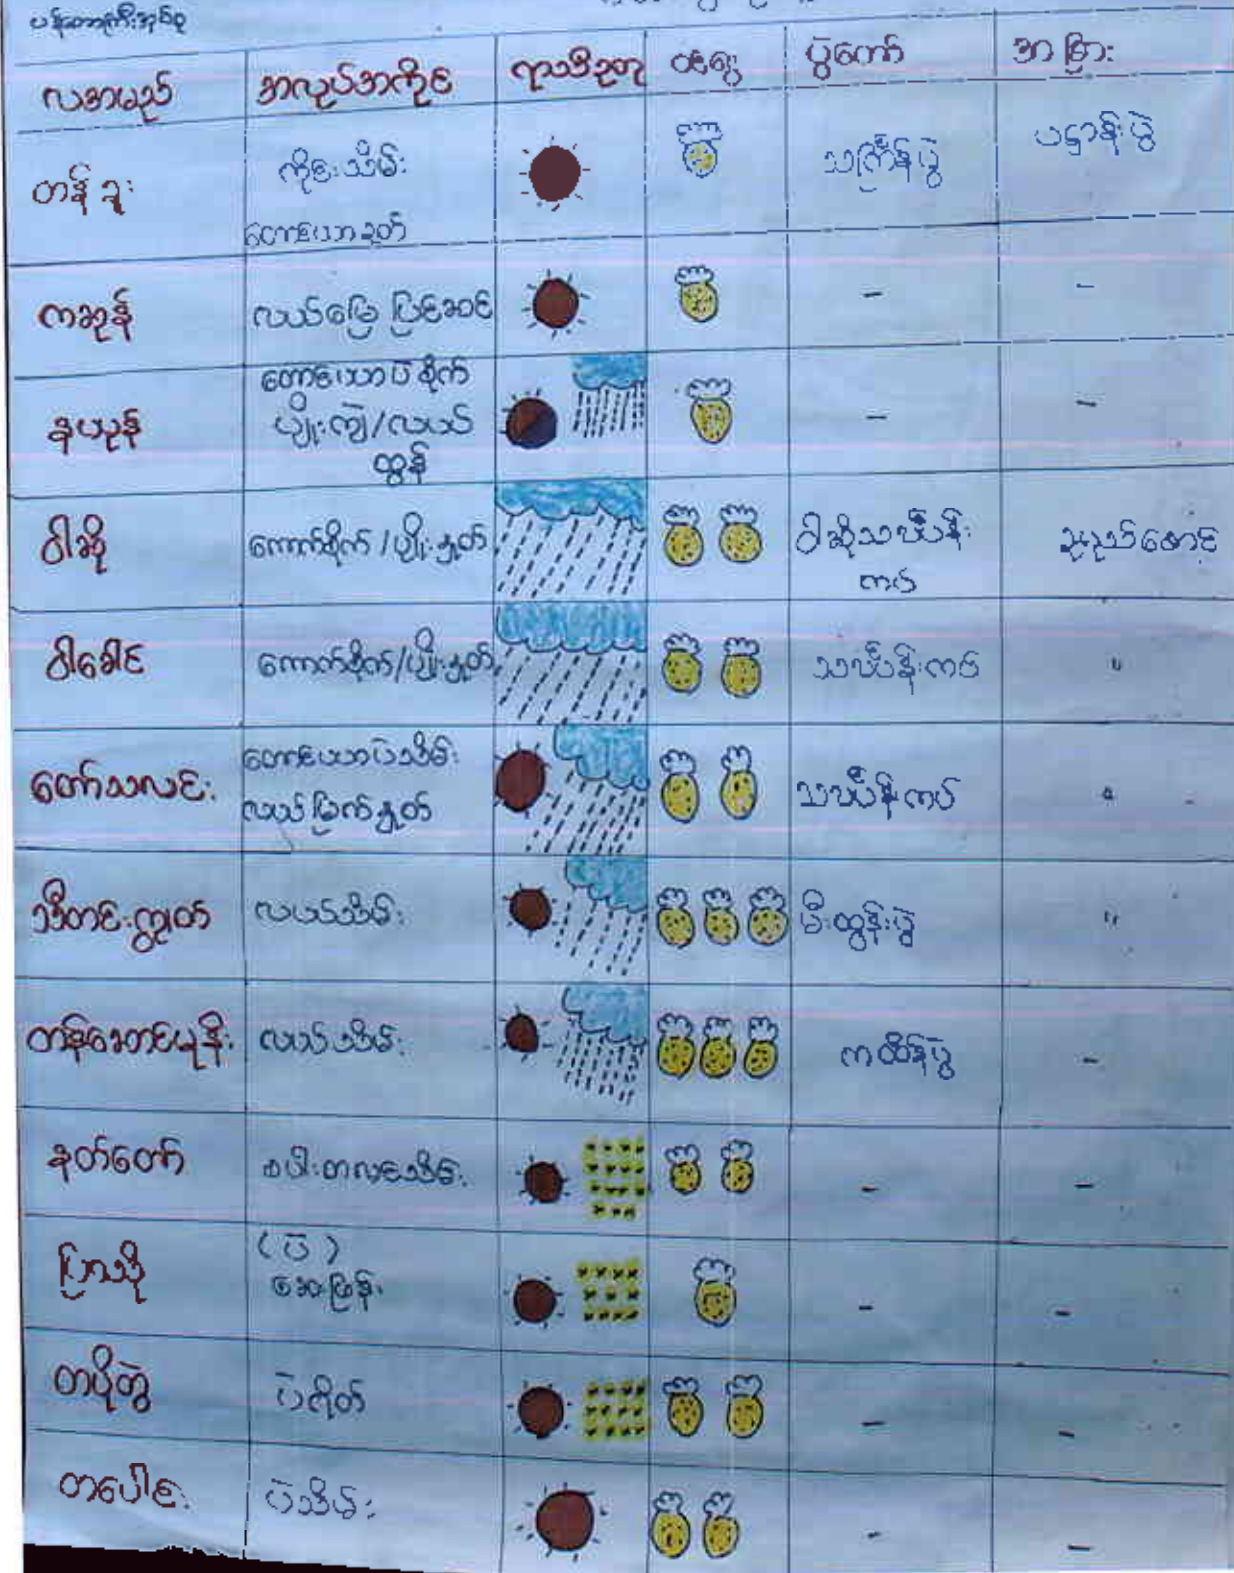 ပန်တောကြီးအုပ်စု
လအမည် အလုပ်အကိုင် ရာသီဥတု ဝင်ငွေ ပွဲတော် အခြား
တန်ခူး ကိုင်းသိမ်း သင်္ကြန်ပွဲ ပဋ္ဌာန်းပွဲ
တောင်ယာခုတ်
ကဆုန် လယ်မြေပြင်ဆင် - -
နယုန် တောင်ယာပဲစိုက် - -
ပျိုးကြဲ/လယ်
ထွန်
ဝါဆို ကောက်စိုက်/ပျိုးနှုတ် ဝါဆိုသင်္ဃန်း
ကပ်
ဝါခေါင် ကောက်စိုက်/ပျိုးနှုတ် သင်္ဃန်းကပ် "
တော်သလင်း တောင်ယာပဲသိမ်း သင်္ဃန်းကပ် "
လယ်မြက်နှုတ်
သီတင်းကျွတ် လယ်သိမ်း မီးထွန်းပွဲ "
တန်ဆောင်မုန်း လယ်သိမ်း ကထိန်ပွဲ -
နတ်တော် စပါးတလင်းသိမ်း - -
ပြာသို (ပဲ) - -
ဆေးဖြန်း
တပို့တွဲ ပဲကိုတ် - -
တပေါင်း ပဲသိမ်း - -